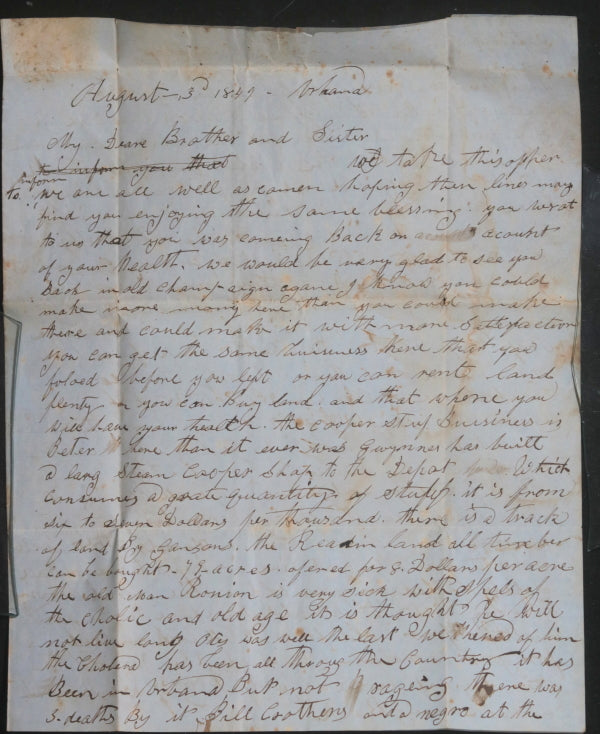 August 3d 1849 - Urbana
My Deare Brother and Sister
to inform you that we take this opper
to inform we are all well as comen hoping thare lines may
find you enjoying the same blessing. you wrat
to us that you was comeing Back on acount
of your health. we would be very glad to see you
Back in old Champaign agane I know you could
make more mony here than you could make
there and could make it with more Satisfaction
you can get the same Buisness here that you
folowd before you left or you can rent land
plenty or you can buy land. and that whare you
will have your health. the cooper stuf Buisiness is
Beter here than it ever was Gwynnes has built
a larg steam Cooper Shop to the Depot Which
consumes a grate quantity of stuff. it is from
six to seven Dollars per thousand. there is a track
of land By Gansons. the Readin land all timber
can be bought. 79 acres. ofered for 8. Dollars per acre
the old man Ronion is very sick with spels of
the cholic and old age it is thought he will
not live long Otes was well the last we hered of him
the Cholera has been all throug the Country it has
Been in Urbana But not rageing there was
5. deaths By it Bill Coothers and a negro at the